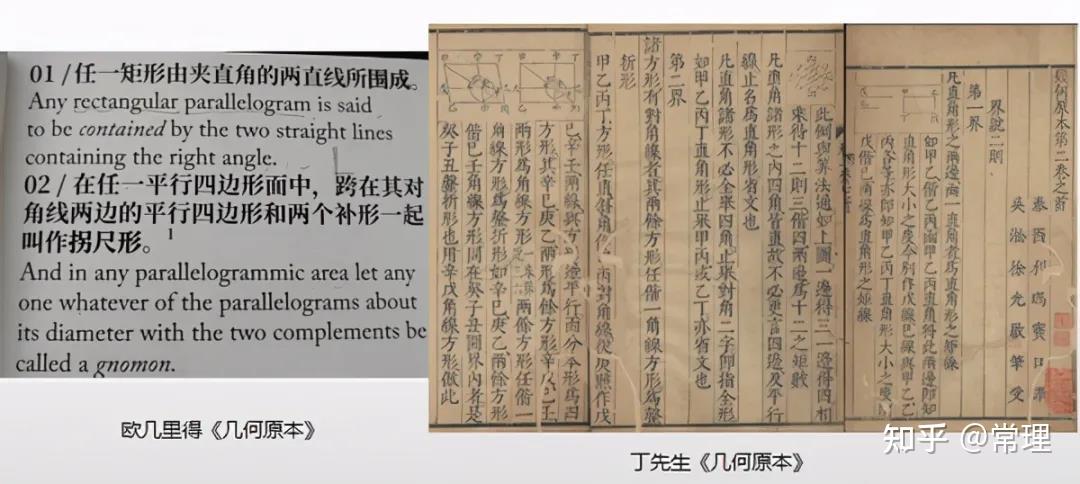 01 / 任一矩形由夹直角的两直线所围成。
Any rectangular parallelogram is said
to be contained by the two straight lines
containing the right angle.
02 / 在任一平行四边形面中，跨在其对
角线两边的平行四边形和两个补形一起
叫作拐尺形。1
And in any parallelogrammic area let any
one whatever of the parallelograms about
its diameter with the two complements be
called a gnomon.
欧几里得《几何原本》
幾何原本第二卷之首
泰西利瑪竇口譯
吳淞徐光啟筆受
界說二則
第一界
凡直角形之兩邊函一直角者為直角形之矩線
如甲乙偕乙丙函甲乙丙直角得此兩邊即知
直角形大小之度今別作戊線己線與甲乙乙
丙各等亦即知甲乙丙丁直角形大小之度
戊偕己兩線為直角形之矩線
此例與算法通如上圖一邊得三一邊得四相
乘得十二則三偕四兩邊為十二之矩數
凡直角諸形之內四角皆直故不必更言四邊及平行
線止名為直角形省文也
凡直角諸形不必全舉四角止舉對角二字即指全形
如甲乙丙丁直角形止舉甲丙或乙丁亦省文也
第二界
諸方形有對角線者其兩餘方形任偕一角線方形為罄
折形
甲乙丙丁方形任直斜角作甲丙對角線從庚點作戊
己辛壬兩線與方形邊平行而分本形為四
方形其辛己庚乙兩形為餘方形辛戊己壬
兩形為角線方形兩餘方形任偕一
角線方形為罄折形如辛己庚乙兩餘方形
偕己壬角線方形同在癸子丑圜界內者是
癸子丑罄折形也用辛戊角線方形倣此
丁先生《几何原本》
知乎 @常理